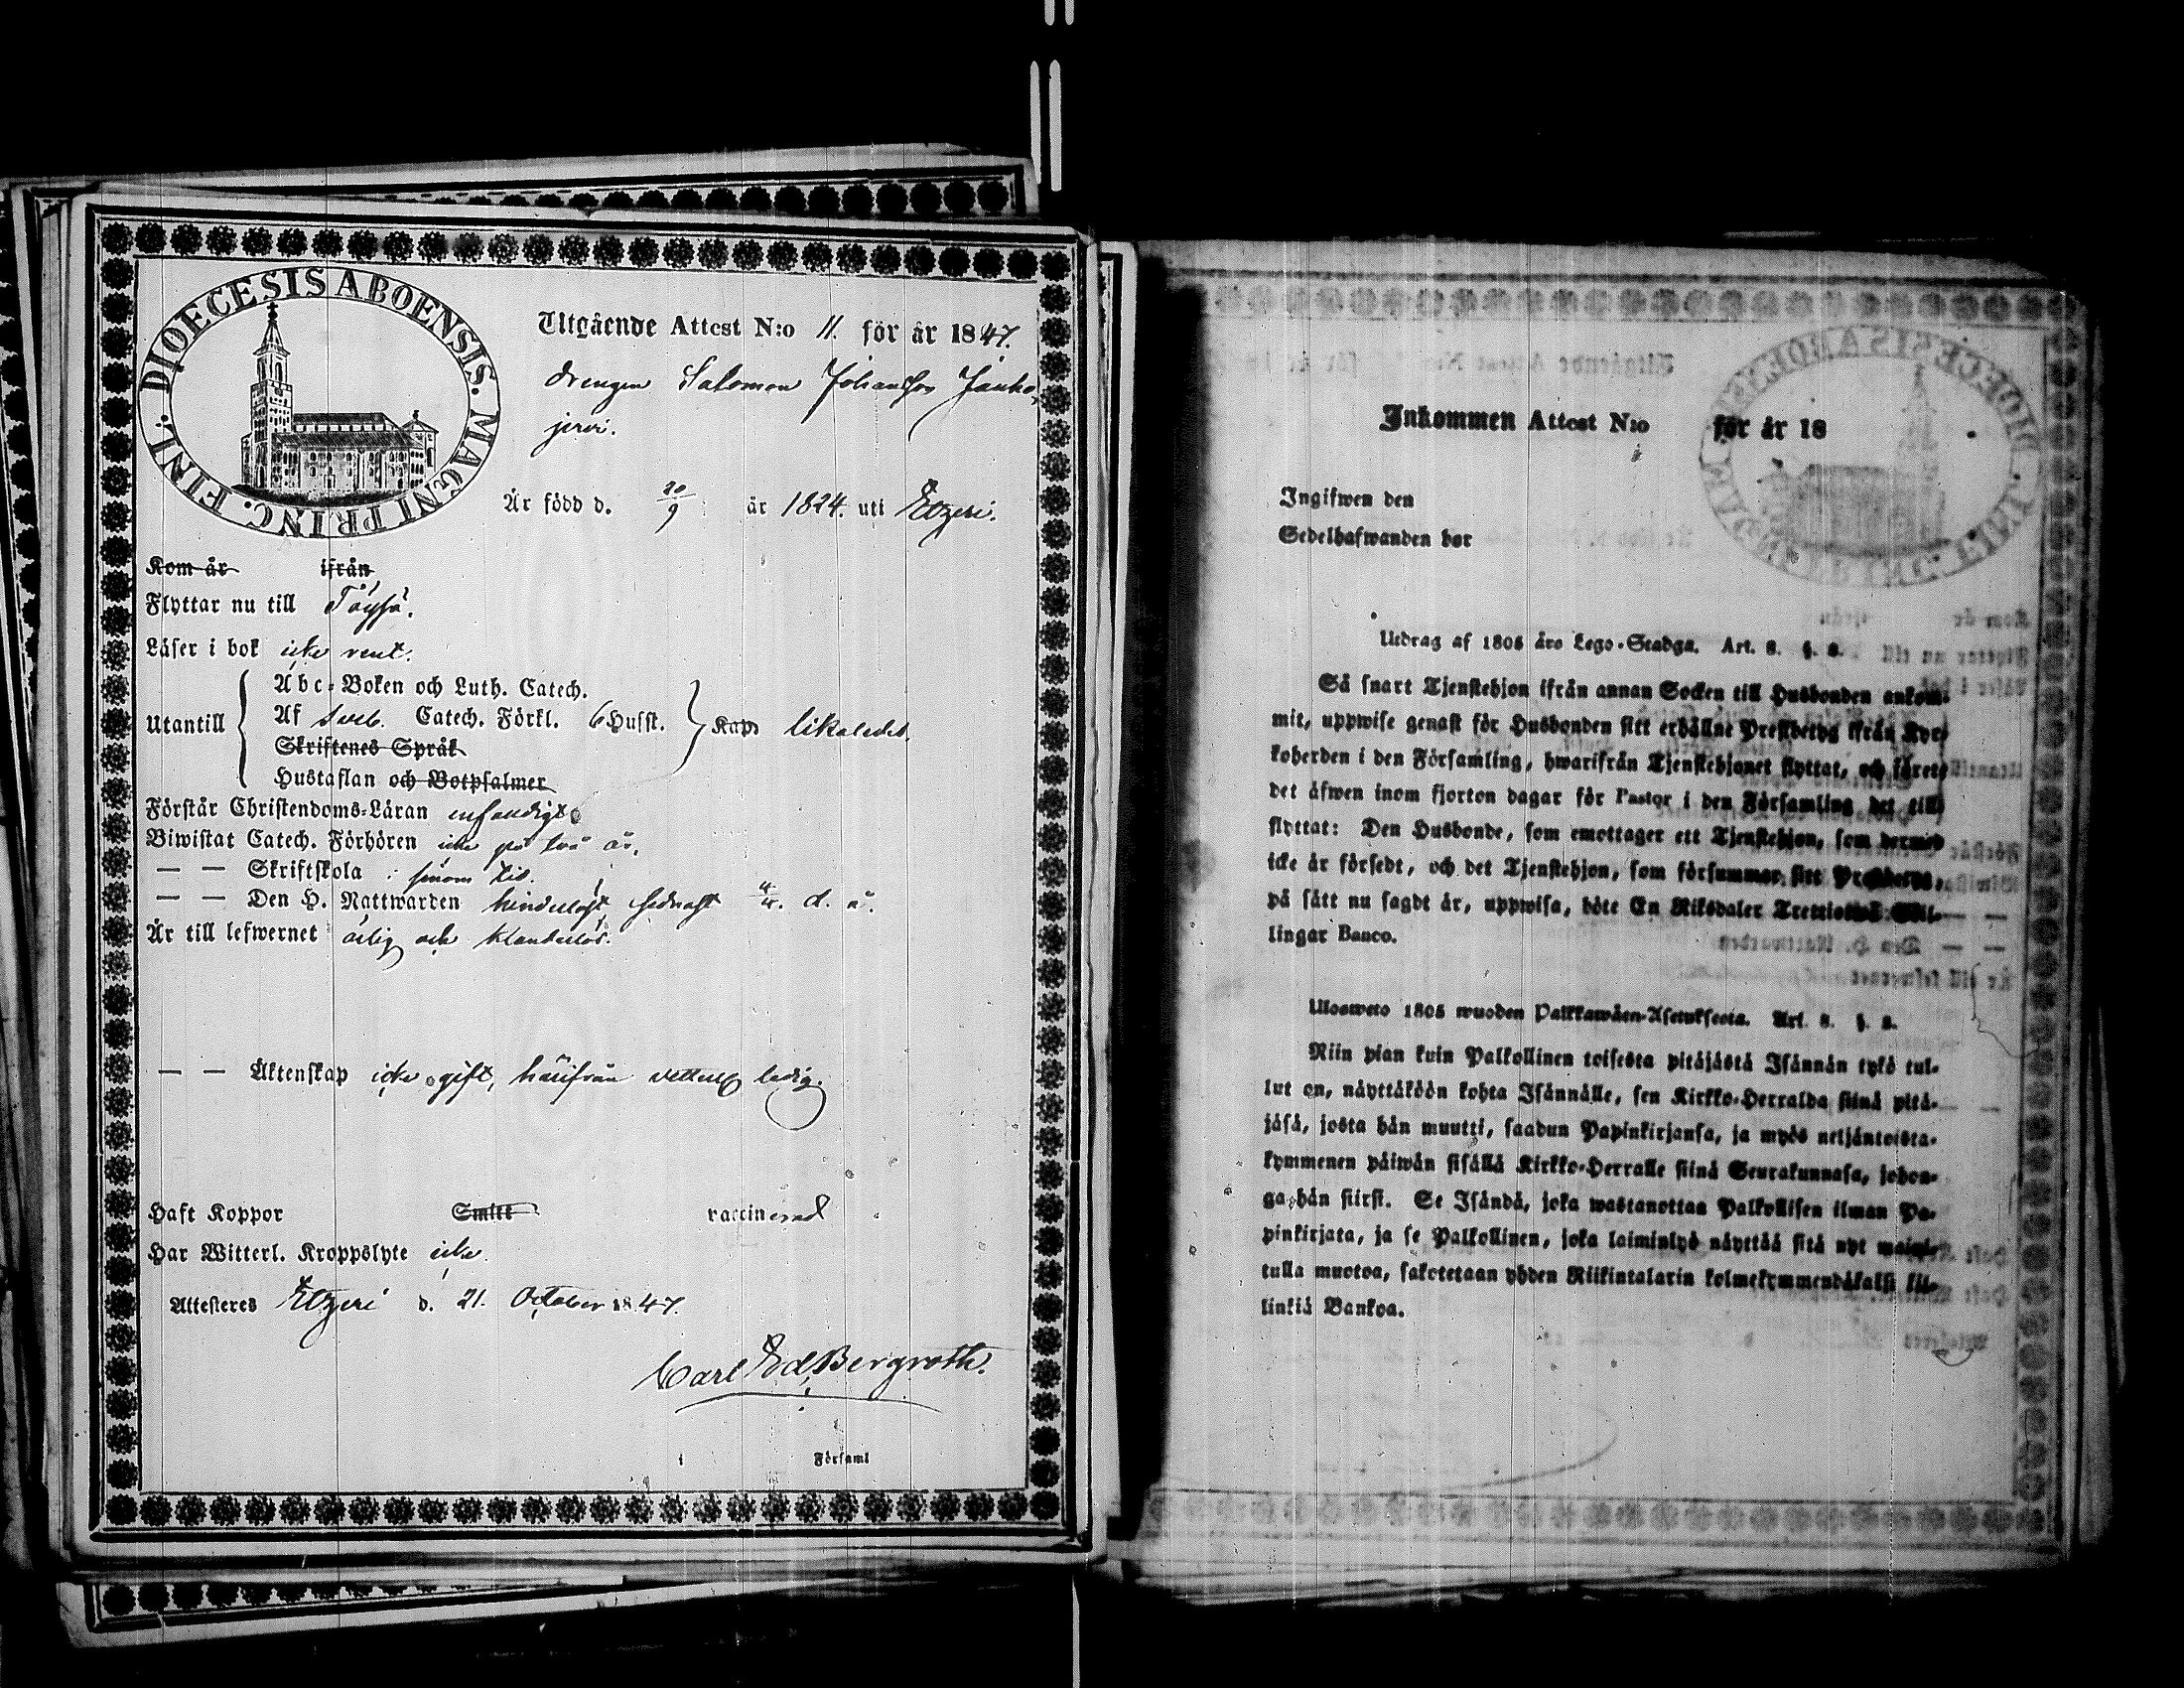 DIOECESIS ABOENSIS. MAGNI PRINC. FINL.
Utgående Attest N:o 11. för år 1847.
drengen Salomon Johansson Jauho
jervi.
Är född d. 20/9 år 1824. uti Etzeri.
Kom år ifrån
Flyttar nu till Töysä.
Läser i bok icke rent.
Abc-Boken och Luth. Catech.
Utantill Af Sveb. Catech. Förkl. 6 Husst. Kap. likaledes.
Skriftenes Språk
Hustaflan och Botpsalmer
Förstår Christendoms-Läran enfaldigt
Biwistat Catech. Förhören icke på två år.
— — Skriftskola i sinom tid.
— — Den H. Nattwarden hinderlöst, sednast d. å.
Är till lefwernet ärlig och klanderlös.
— — Äktenskap icke gift, härifrån vetterl. ledig.
Haft Koppor Smitt vaccinerad
Har Witterl. Kroppslyte icke.
Attesteres Etzeri d. 21. October 1847.
Carl Ed. Bergroth.
i Församl
Inkommen Attest N:o för år 18
Ingifwen den
Sedelhafwanden bor
Utdrag af 1805 års Lego-Stadga. Art. 8. §. 8.
Så snart Tjenstehjon ifrån annan Socken till Husbonden ankom-
mit, uppwise genast för Husbonden sitt erhållne Prestbetyg ifrån Kyr-
koherden i den Församling, hwarifrån Tjenstehjonet flyttat, och förete
det äfwen inom fjorton dagar för Pastor i den Församling det till
flyttat: Den Husbonde, som emottager ett Tjenstehjon, som dermed
icke är försedt, och det Tjenstehjon, som försummar sitt Prestbetyg,
på sätt nu sagdt är, uppwisa, böte En Riksdaler Trettiotwå Skil-
lingar Banco.
Ulosweto 1805 wuoden Palkkawäen-Asetuksesta. Art. 8. §. 8.
Niin pian kuin Palkollinen toisesta pitäjästä Isännän tykö tul-
lut on, näyttäköön kohta Isännälle, sen Kirkko-Herralda siinä pitä-
jäsä, josta hän muutti, saadun Papinkirjansa, ja myös neljäntoista-
kymmenen päiwän sisällä Kirkko-Herralle siinä Seurakunnasa, johon-
ga hän siirsi. Se Isändä, joka wastanottaa Palkollisen ilman Pa-
pinkirjata, ja se Palkollinen, joka laiminlyö näyttää sitä nyt maini-
tulla muotoa, sakotetaan yhden Riikintalarin kolmekymmendäkaksi kil-
linkiä Bankoa.